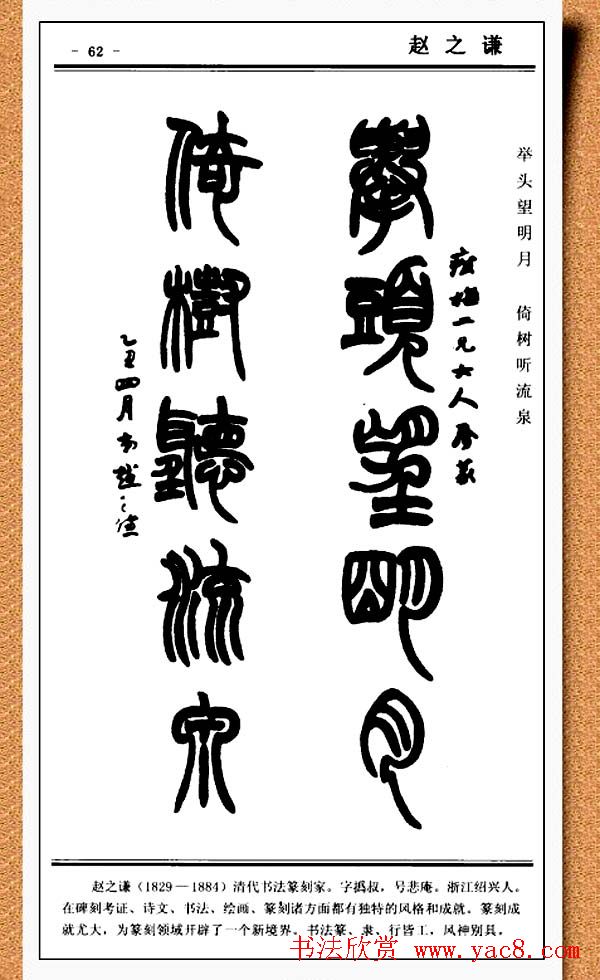 - 62 -　赵之谦
举头望明月　倚树听流泉
梅一兄大人
舉頭望明月
倚樹聽流泉
乙丑四月弟趙之謙
赵之谦（1829—1884）清代书法篆刻家。字撝叔，号悲庵。浙江绍兴人。
在碑刻考证、诗文、书法、绘画、篆刻诸方面都有独特的风格和成就。篆刻成
就尤大，为篆刻领域开辟了一个新境界。书法篆、隶、行皆工，风神别具。
书法欣赏 www.yac8.com